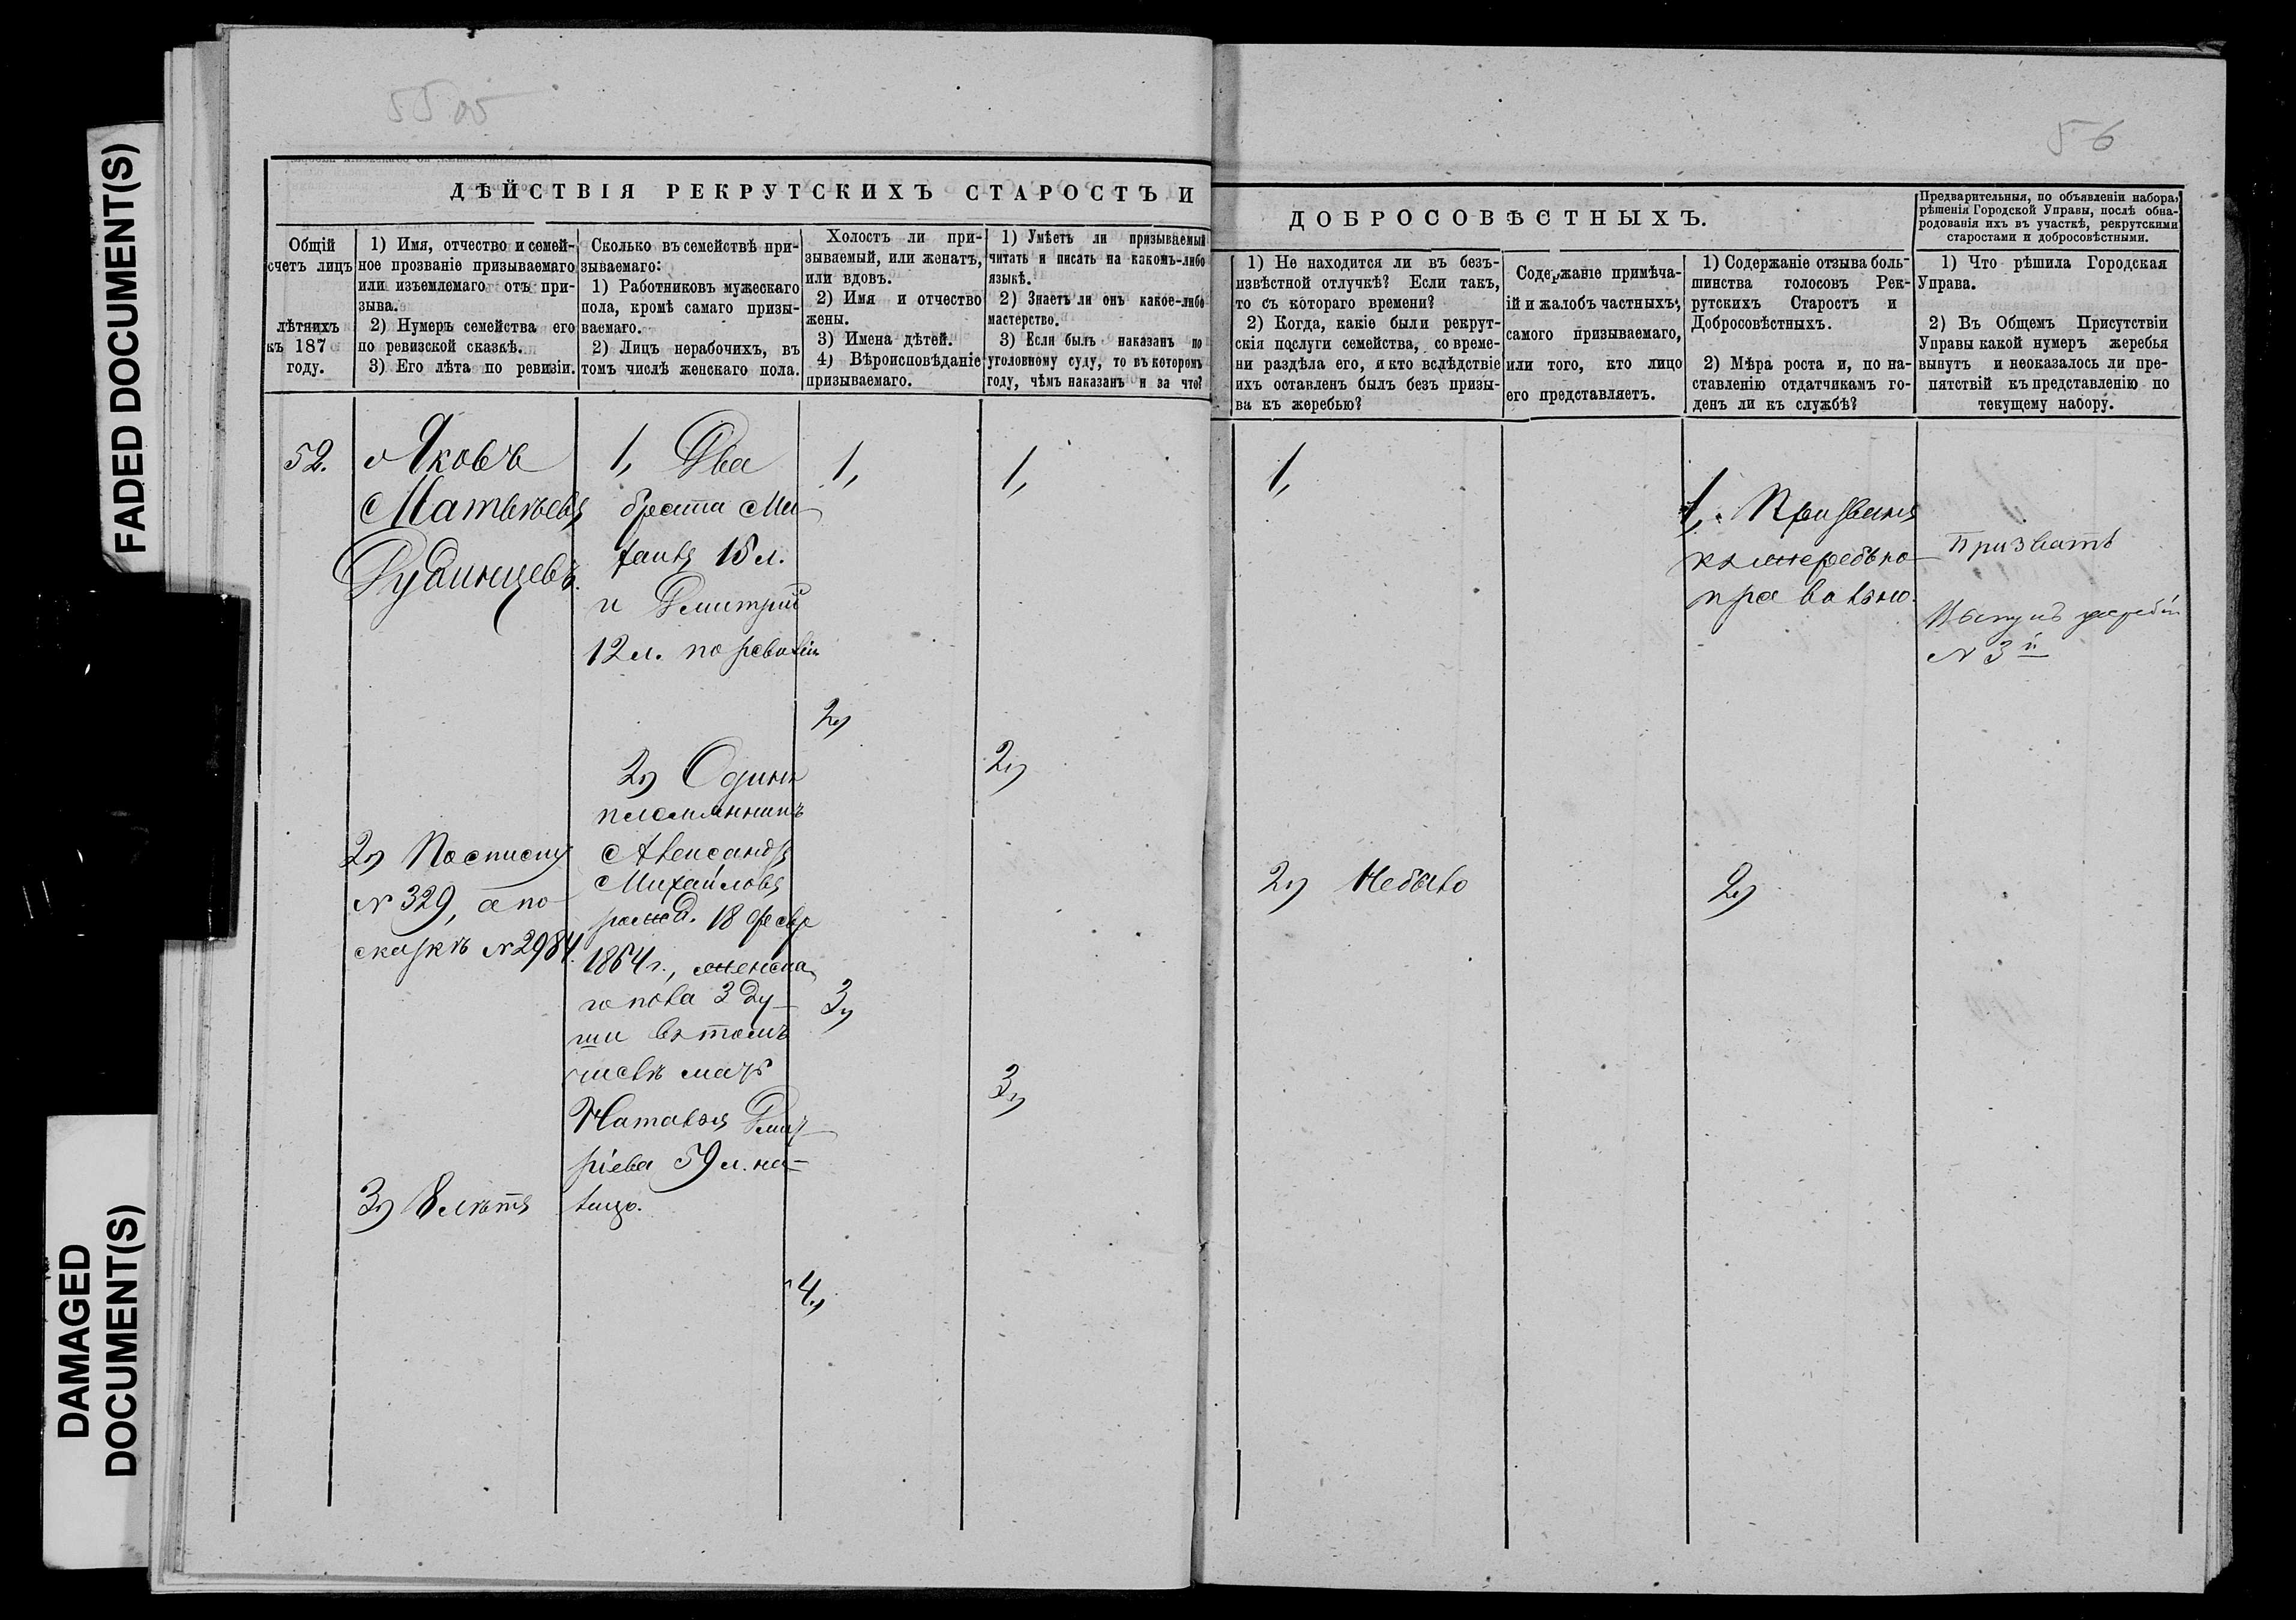 FADED DOCUMENT(S)
DAMAGED
DOCUMENT(S)
55
56
ДѢЙСТВІЯ РЕКРУТСКИХЪ СТАРОСТЪ И
ДОБРОСОВѢСТНЫХЪ.
Предварительныя, по объявленіи набора,
рѣшенія Городской Управы, послѣ обна-
родованія ихъ въ участкѣ, рекрутскими
старостами и добросовѣстными.
Общій
счетъ лицъ
лѣтнихъ
къ 187
году.
1) Имя, отчество и семей-
ное прозваніе призываемаго
или изъемлемаго отъ при-
зыва.
2) Нумеръ семейства его
по ревизской сказкѣ.
3) Его лѣта по ревизіи.
Сколько въ семействѣ при-
зываемаго:
1) Работниковъ мужескаго
пола, кромѣ самаго призы-
ваемаго.
2) Лицъ нерабочихъ, въ
томъ числѣ женскаго пола.
Холостъ ли при-
зываемый, или женатъ,
или вдовъ.
2) Имя и отчество
жены.
3) Имена дѣтей.
4) Вѣроисповѣданіе
призываемаго.
1) Умѣетъ ли призываемый
читать и писать на какомъ-либо
языкѣ.
2) Знаетъ ли онъ какое-либо
мастерство.
3) Если былъ наказанъ по
уголовному суду, то въ которомъ
году, чѣмъ наказанъ и за что?
1) Не находится ли въ безъ-
извѣстной отлучкѣ? Если такъ,
то съ котораго времени?
2) Когда, какіе были рекрут-
скія послуги семейства, со време-
ни раздѣла его, и кто вслѣдствіе
ихъ оставленъ былъ безъ призы-
ва къ жеребью?
Содержаніе примѣча-
ій и жалобъ частныхъ,
самого призываемаго,
или того, кто лицо
его представляетъ.
1) Содержаніе отзыва боль-
шинства голосовъ Рек-
рутскихъ Старостъ и
Добросовѣстныхъ.
2) Мѣра роста и, по на-
ставленію отдатчикамъ го-
денъ ли къ службѣ?
1) Что рѣшила Городская
Управа.
2) Въ Общемъ Присутствіи
Управы какой нумеръ жеребья
вынутъ и неоказалось ли пре-
пятствій къ представленію по
текущему набору.
52.
Яковъ
Матвѣевъ
Рубинцевъ.
2) По списку
№ 329, а по
сказкѣ № 2984.
3) 8 лѣтъ
1, Два
брата Ми-
хаилъ 15 л.
и Дмитрій
12 л. по ревизіи
2) Одинъ
племянникъ
Александръ
Михайловъ
рожд. 18 февр
1864 г., женска
го пола 3 ду-
ши въ томъ
числѣ мать
Наталья Дмит-
ріева 59 л. на-
лицо.
1,
2)
3)
4)
1,
2)
3)
1,
2) Небыло
1, Призванъ
къ жеребью
правильно.
2)
Призвать
Вынулъ жребій
№ 3й